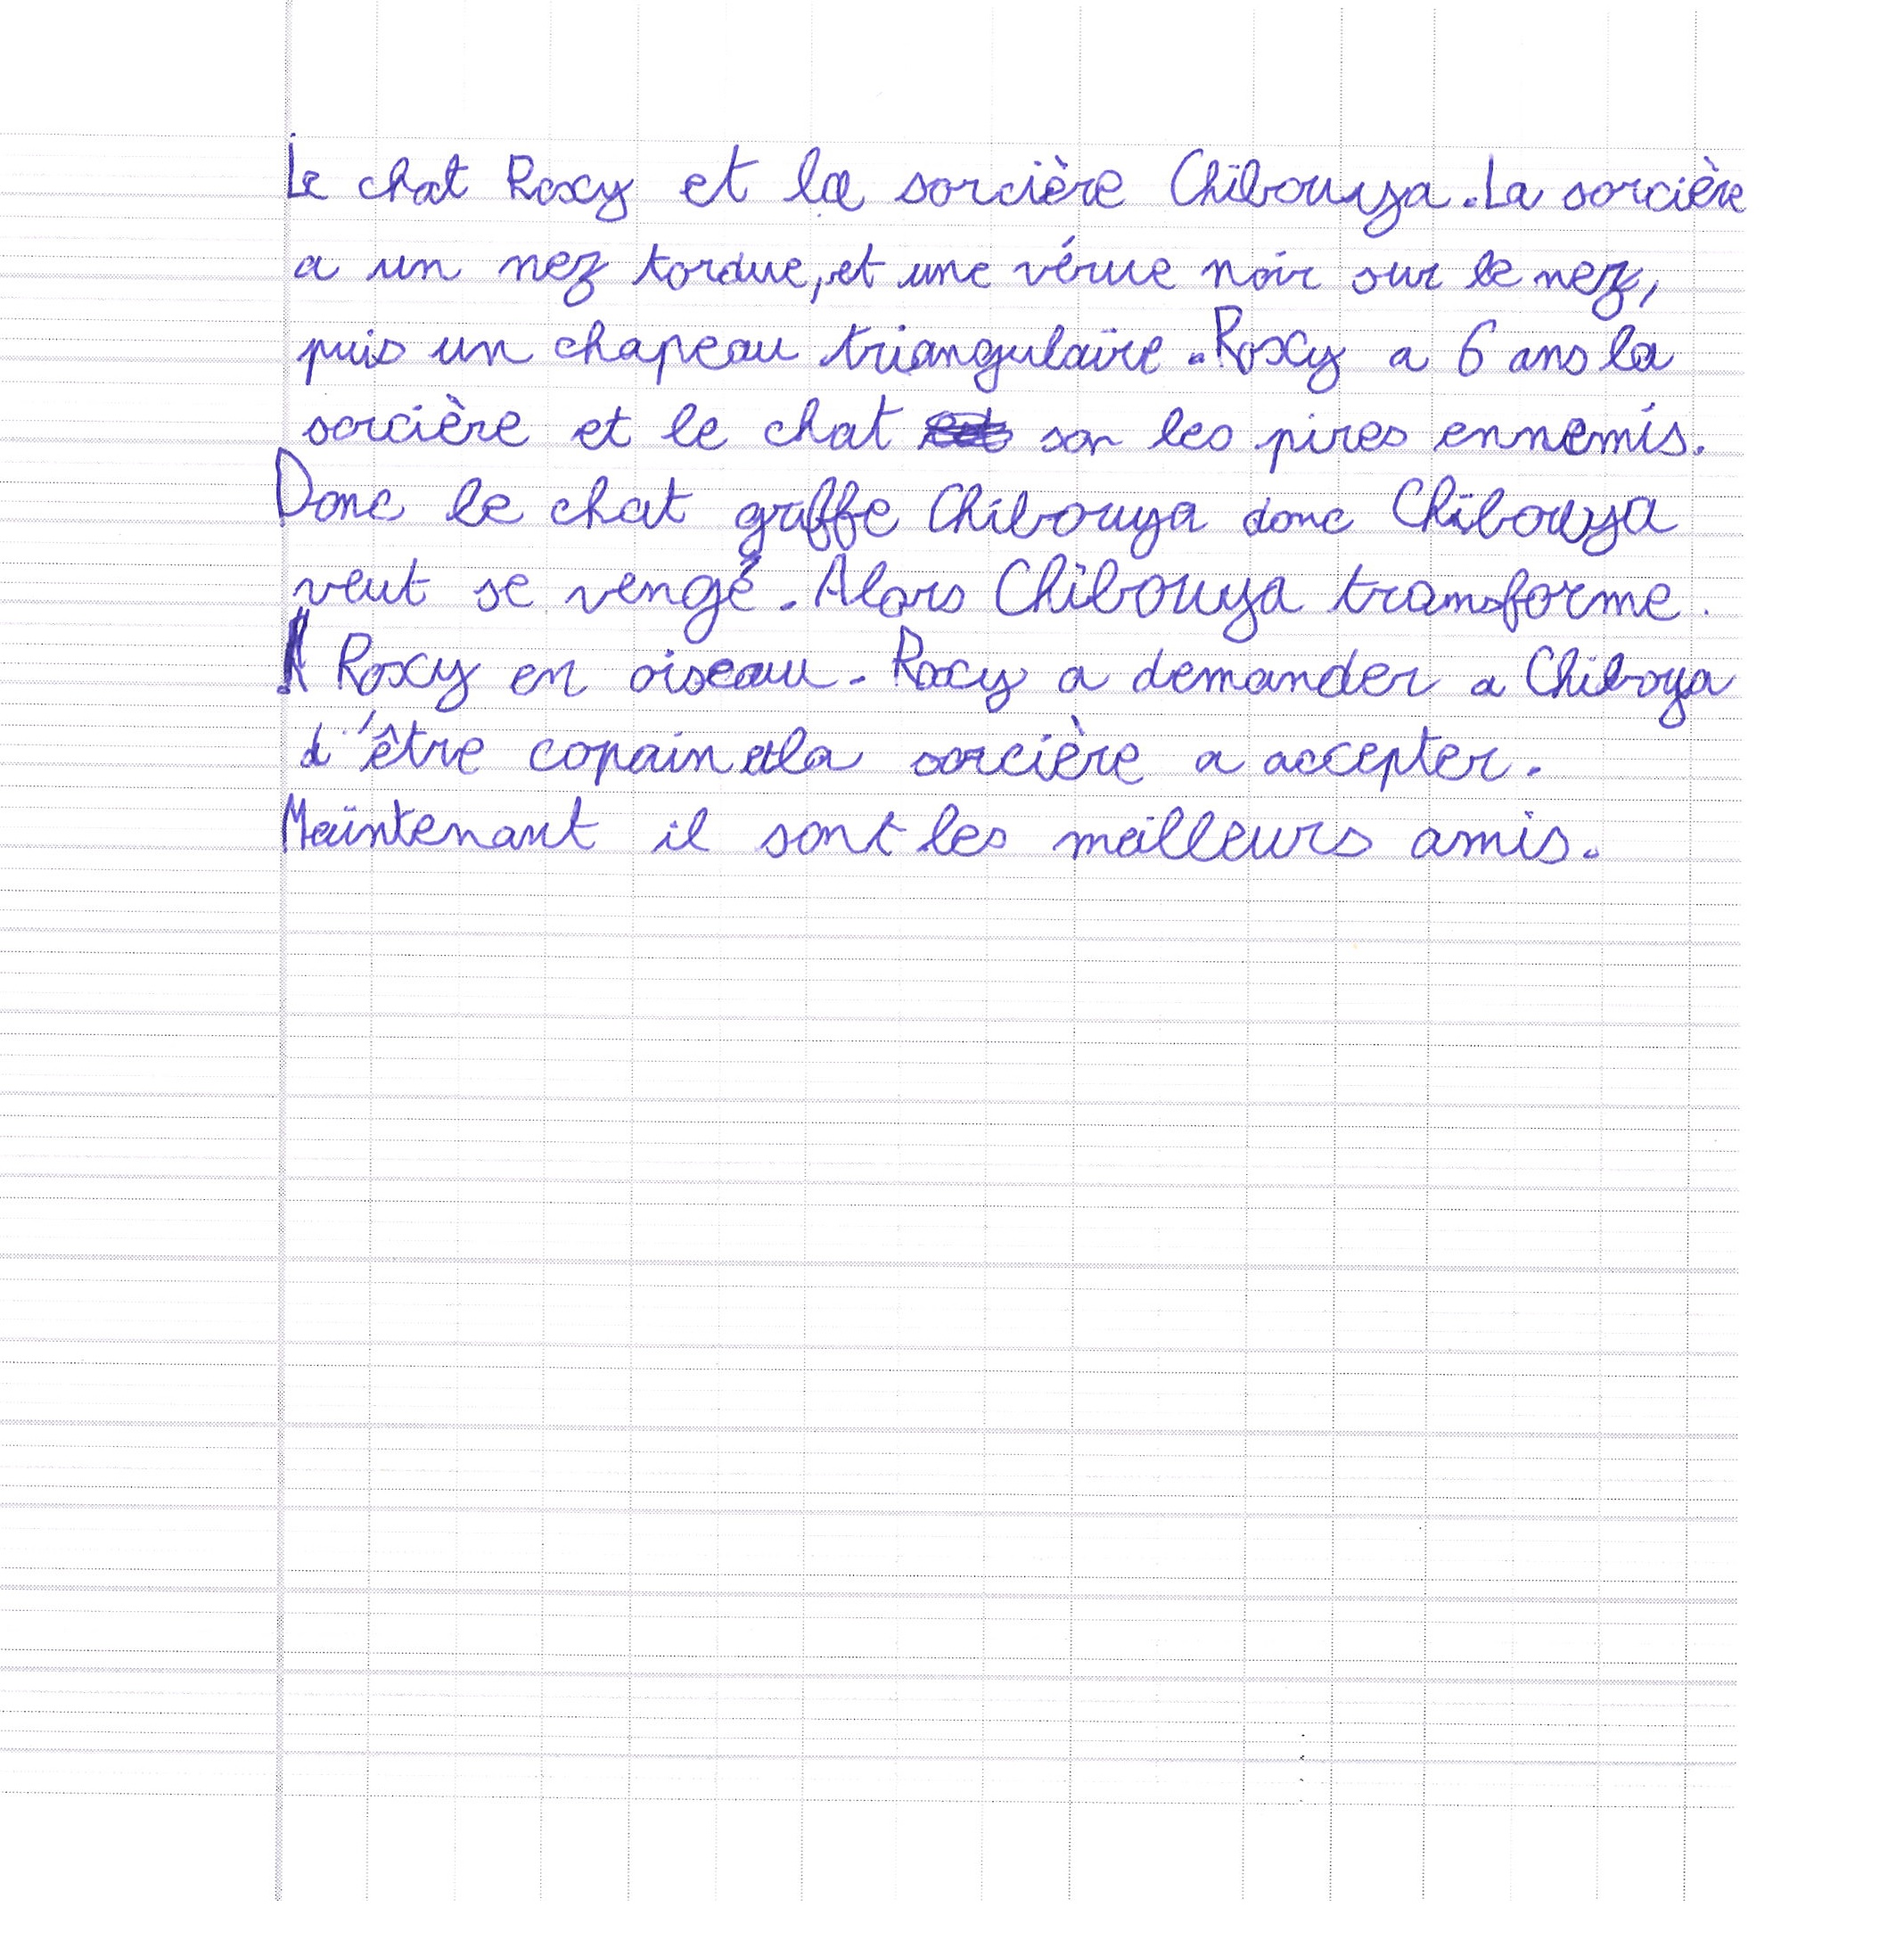 Le chat Roxy et la sorcière Chibouya. La sorcière
a un nez tordue, et une vérue noir sur le nez,
puis un chapeau triangulaire. Roxy a 6 ans la
sorcière et le chat son les pires ennemis.
Donc le chat griffe Chibouya donc Chibouya
veut se vengé. Alors Chibouya transforme.
Roxy en oiseau. Roxy a demander a Chiboya
d'être copain et la sorcière a accepter.
Maintenant il sont les meilleurs amis.